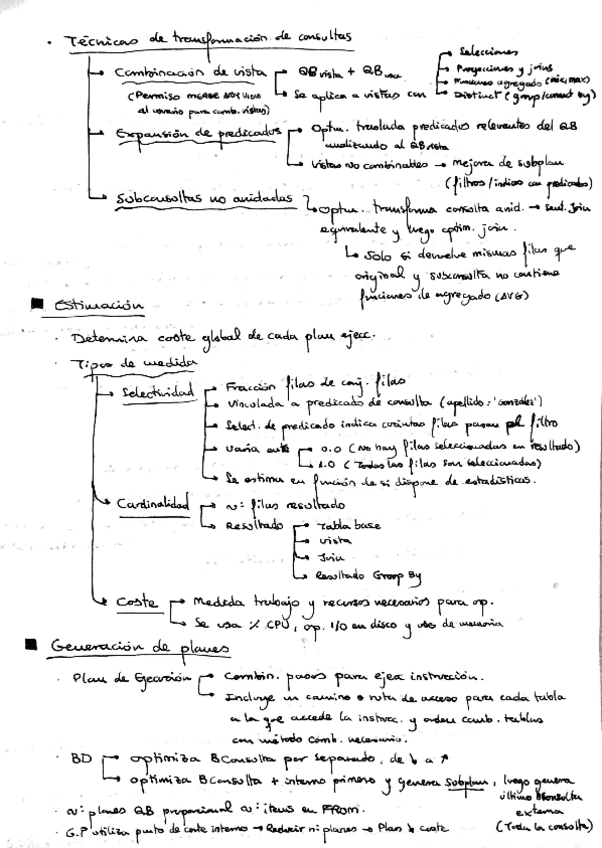 · Técnicas de transformación de consultas
→ Combinación de vista → QB vista + QB
(Permiso MERGE ANY VIEW al usuario para comb. vistas)
→ Se aplica a vistas con
→ Selecciones
→ Proyecciones y joins
→ Funciones agregado (min, max)
→ Distinct (group/connect by)
→ Expansión de predicados → Optm. traslada predicados relevantes del QB
analizando al QB vista
→ Vistas no combinables → mejora de subplan
(filtros/indices con predicados)
→ Subconsultas no anidadas
→ Optm. transforma consulta anid. → sent. Join
equivalente y luego optim. join.
→ Solo si devuelve mismas filas que
original y subconsulta no contiene
funciones de agregado (AVG)
■ Estimación
· Determina coste global de cada plan ejec.
· Tipos de medida
→ Selectividad → Fracción filas de conj. filas
→ Vinculada a predicado de consulta (apellido: 'González')
→ Select. de predicado indica cuántas filas pasan filtro
→ Varía → 0.0 (No hay filas seleccionadas en resultado)
→ 1.0 (Todas las filas son seleccionadas)
→ Se estima en función de si dispone de estadísticas.
→ Cardinalidad → nº filas resultado
→ Resultado → Tabla base
→ Vista
→ Join
→ Resultado Group By
→ Coste → Medida trabajo y recursos necesarios para op.
→ Se usa % CPU, op. I/O en disco y uso de memoria
■ Generación de planes
· Plan de Ejecución → Combin. pasos para ejec instrucción.
→ Incluye un camino o ruta de acceso para cada tabla
a la que accede la instruc. y orden comb. tablas
con método comb. necesario.
· BD → optimiza BConsulta por separado, de ↓ a ↑
→ optimiza BConsulta + interno primero y genera Subplan, luego genera
último BConsulta
externa
(Toda la consulta)
· nº planes QB proporcional nº items en FROM.
· G.P utiliza punto de corte interno → Reducir nº planes → Plan coste